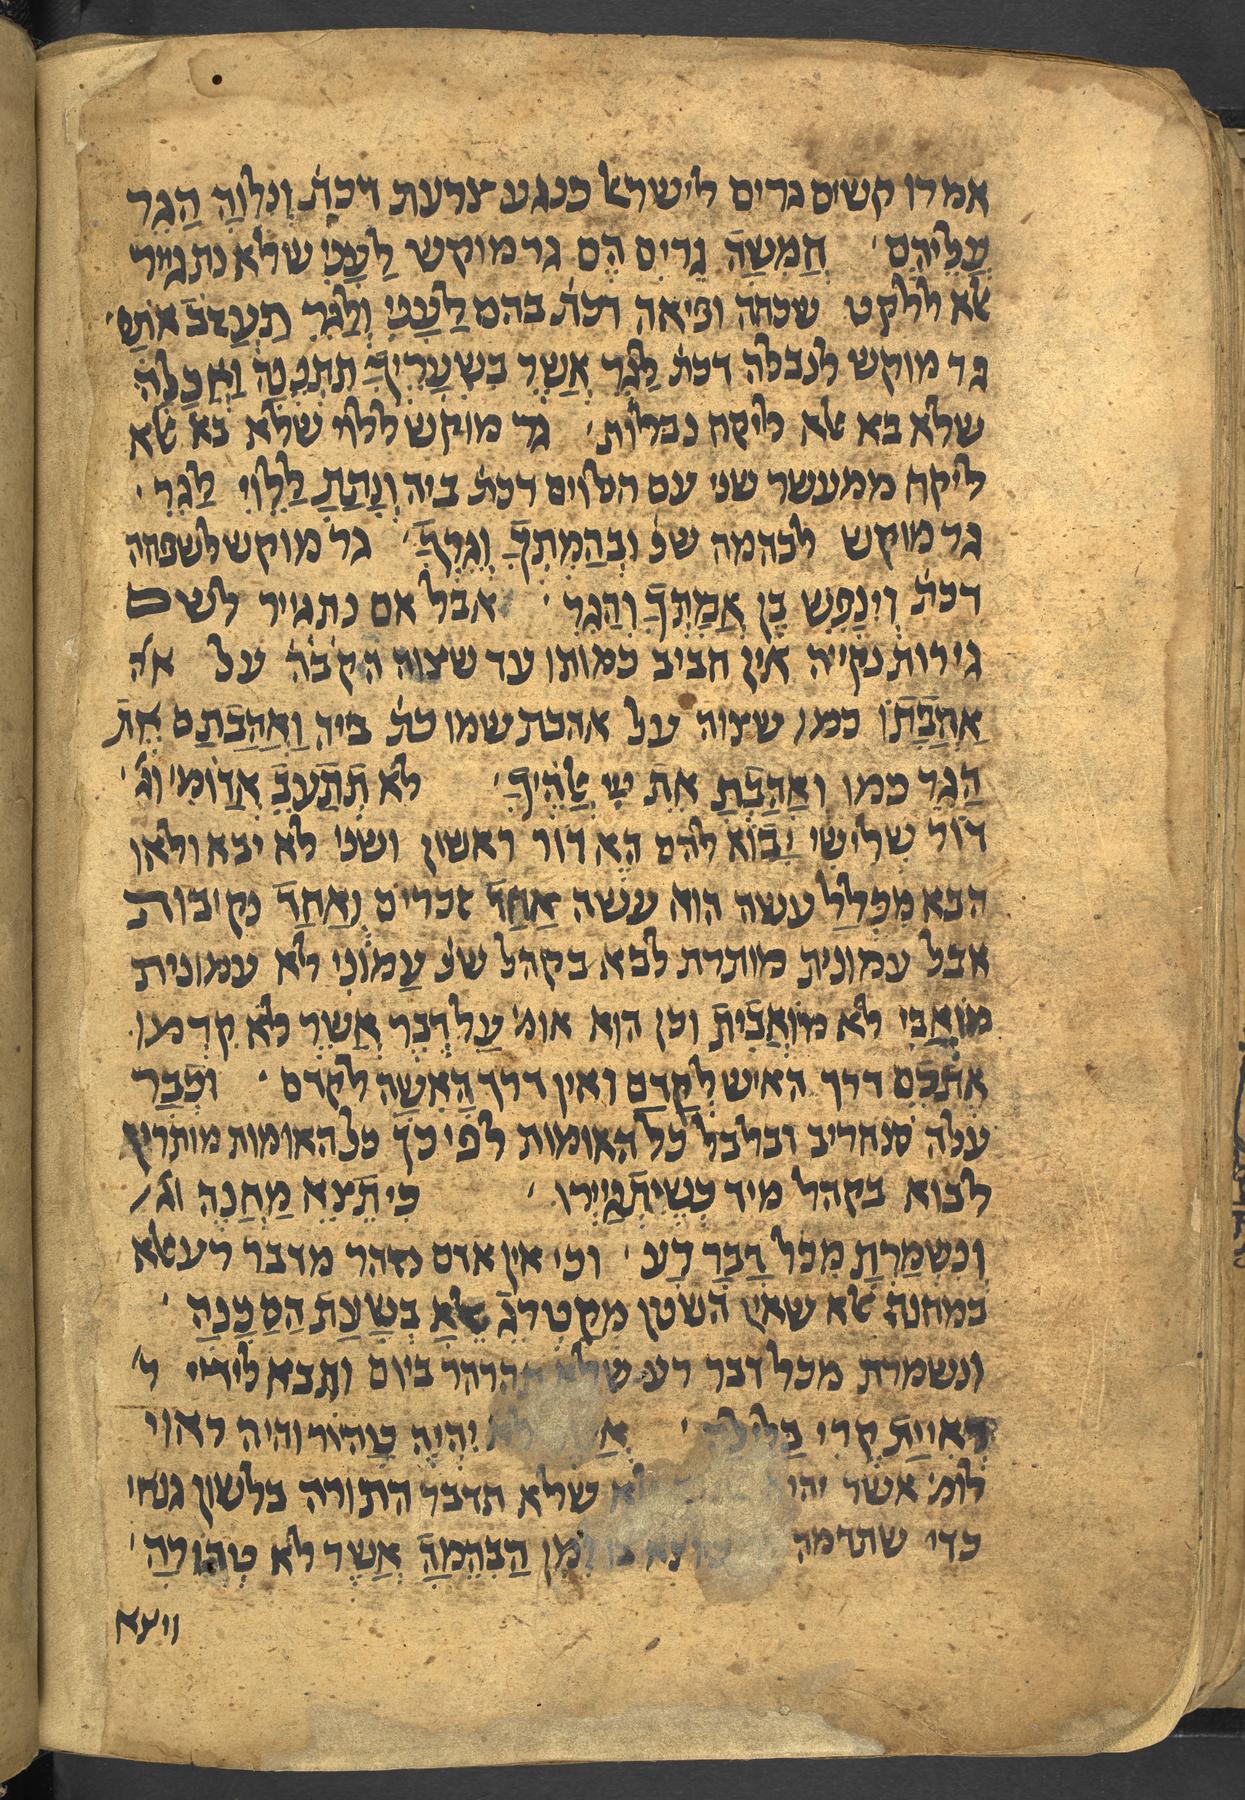 אמרו קשים גרים לישרא כנגע צרעת דכת וְנִלְוָה הַגֵר
עֲלֵיהֶם׳ חֲמִשָה גֵרִים הֶם גר מוקש לַעָנִי שלא נתגייר
אלא ללקט שכחה ופיאה דכת בהם לַעָנִי וְלַגֵר תַעֲזֹב אֹתָם׳
גר מוקש לנבלה דכת לַגֵר אֲשֶר בִשְעָרֶיךָ תִתְנֶנָה וַאֲכָלָהּ
שלא בא אלא ליקח נבלות׳ גר מוקש ללוי שלא בא אלא
ליקח ממעשר שני עם הלוים דכת ביה וְנָתַתָ לַלֵוִי לַגֵר׳
גר מוקש לבהמה שנ וּבְהֶמְתְךָ וְגֵרְךָ׳ גר מוקש לשפחה
דכת וְיִנָפֵש בֶן אֲמָתְךָ וְהַגֵר׳ אבל אם נתגייר לשם
גירות נקייה אין חביב כמותו עד שצוה הקבה על אה
אַהֲבָתוֹ כמו שצוה על אהבת שמו כת ביה וַאֲהַבְתֶם אֶת
הַגֵר כמו וְאָהַבְתָ אֵת יְיָ אֱלֹהֶיךָ׳ לֹא תְתַעֵב אֲדוֹמִי וג׳
דור שְלִישִי יָבוֹא להם הא דור ראשון ושני לא יבא ולאו
הבא מִכְלַל עשה הוא עשה אֶחָד זכרים וְאֶחָד נקיבות
אבל עמונית מותרת לבא בקהל שנ עַמוֹנִי ולא עמונית
מוֹאָבִי ולא מוֹאָבִית וכן הוא אומ׳ עַל דְבַר אֲשֶר לֹא קִדְמוּ
אֶתְכֶם דרך האיש לְקַדֵם ואין דרך הָאִשָה לקדם׳ וּכְבָר
עלה סנחריב ובלבל כל האומות לפי כך כל האומות מותרין
לבוא בקהל מיד כְשֶיִתְגַיְירוּ׳ כִי תֵצֵא מַחֲנֶה וג׳
וְנִשְמַרְתָ מִכֹל דָבָר רָע׳ וכי אין אדם נזהר מדבר רע אלא
במחנה אלא שאין השטן מְקַטְרֵג אֶלָא בְשָעַת הַסַכָנָה׳
ונשמרת מכל דבר רע שלא תהרהר ביום ותבא לידי ר׳
רְאִיַית קֶרִי בַלַילָה׳ אֲשֶר לֹא יִהְיֶה טָהוֹר והיה ראוי
לומ׳ אשר יהיה אלא שלא תדבר התורה בלשון גנאי
כדי שתדמה מִן הַבְהֵמָה אֲשֶר לֹא טְהוֹרָה׳
ויצא